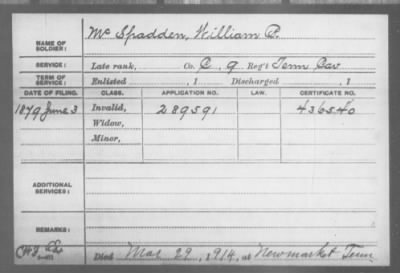 NAME OF SOLDIER: Mc Spadden, William B.
SERVICE: Late rank, Co. C, 9 Reg't Tenn Cav
TERM OF SERVICE: Enlisted , 1 Discharged , 1
DATE OF FILING. CLASS. APPLICATION NO. LAW. CERTIFICATE NO.
1879 June 3 Invalid, 289591 436540
Widow,
Minor,
ADDITIONAL SERVICES:
REMARKS:
Died Mar 29, 1914, at Newmarket Tenn